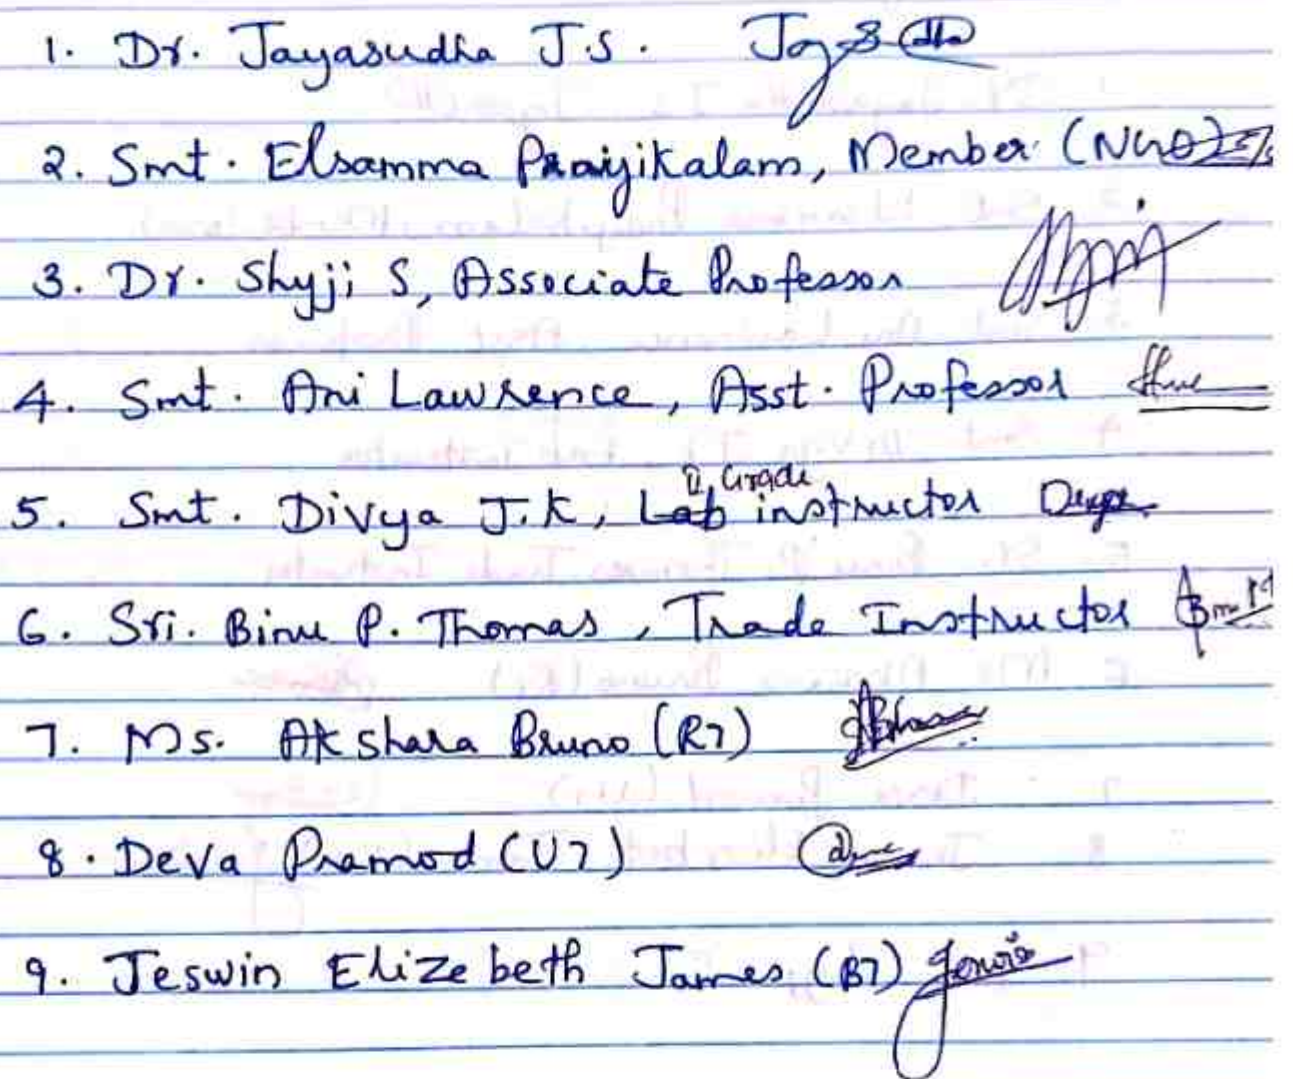 1. Dr. Jayasudha J.S.
2. Smt. Elsamma Praiyikalam, Member (NGO)
3. Dr. Shyji S, Associate Professor
4. Smt. Ani Lawrence, Asst. Professor
II, Grade
5. Smt. Divya J.K, Lab instructor
6. Sri. Binu P. Thomas, Trade Instructor
7. Ms. Akshara Bruno (R7)
8. Deva Pramod (U7)
9. Jeswin Elizebeth James (B7)